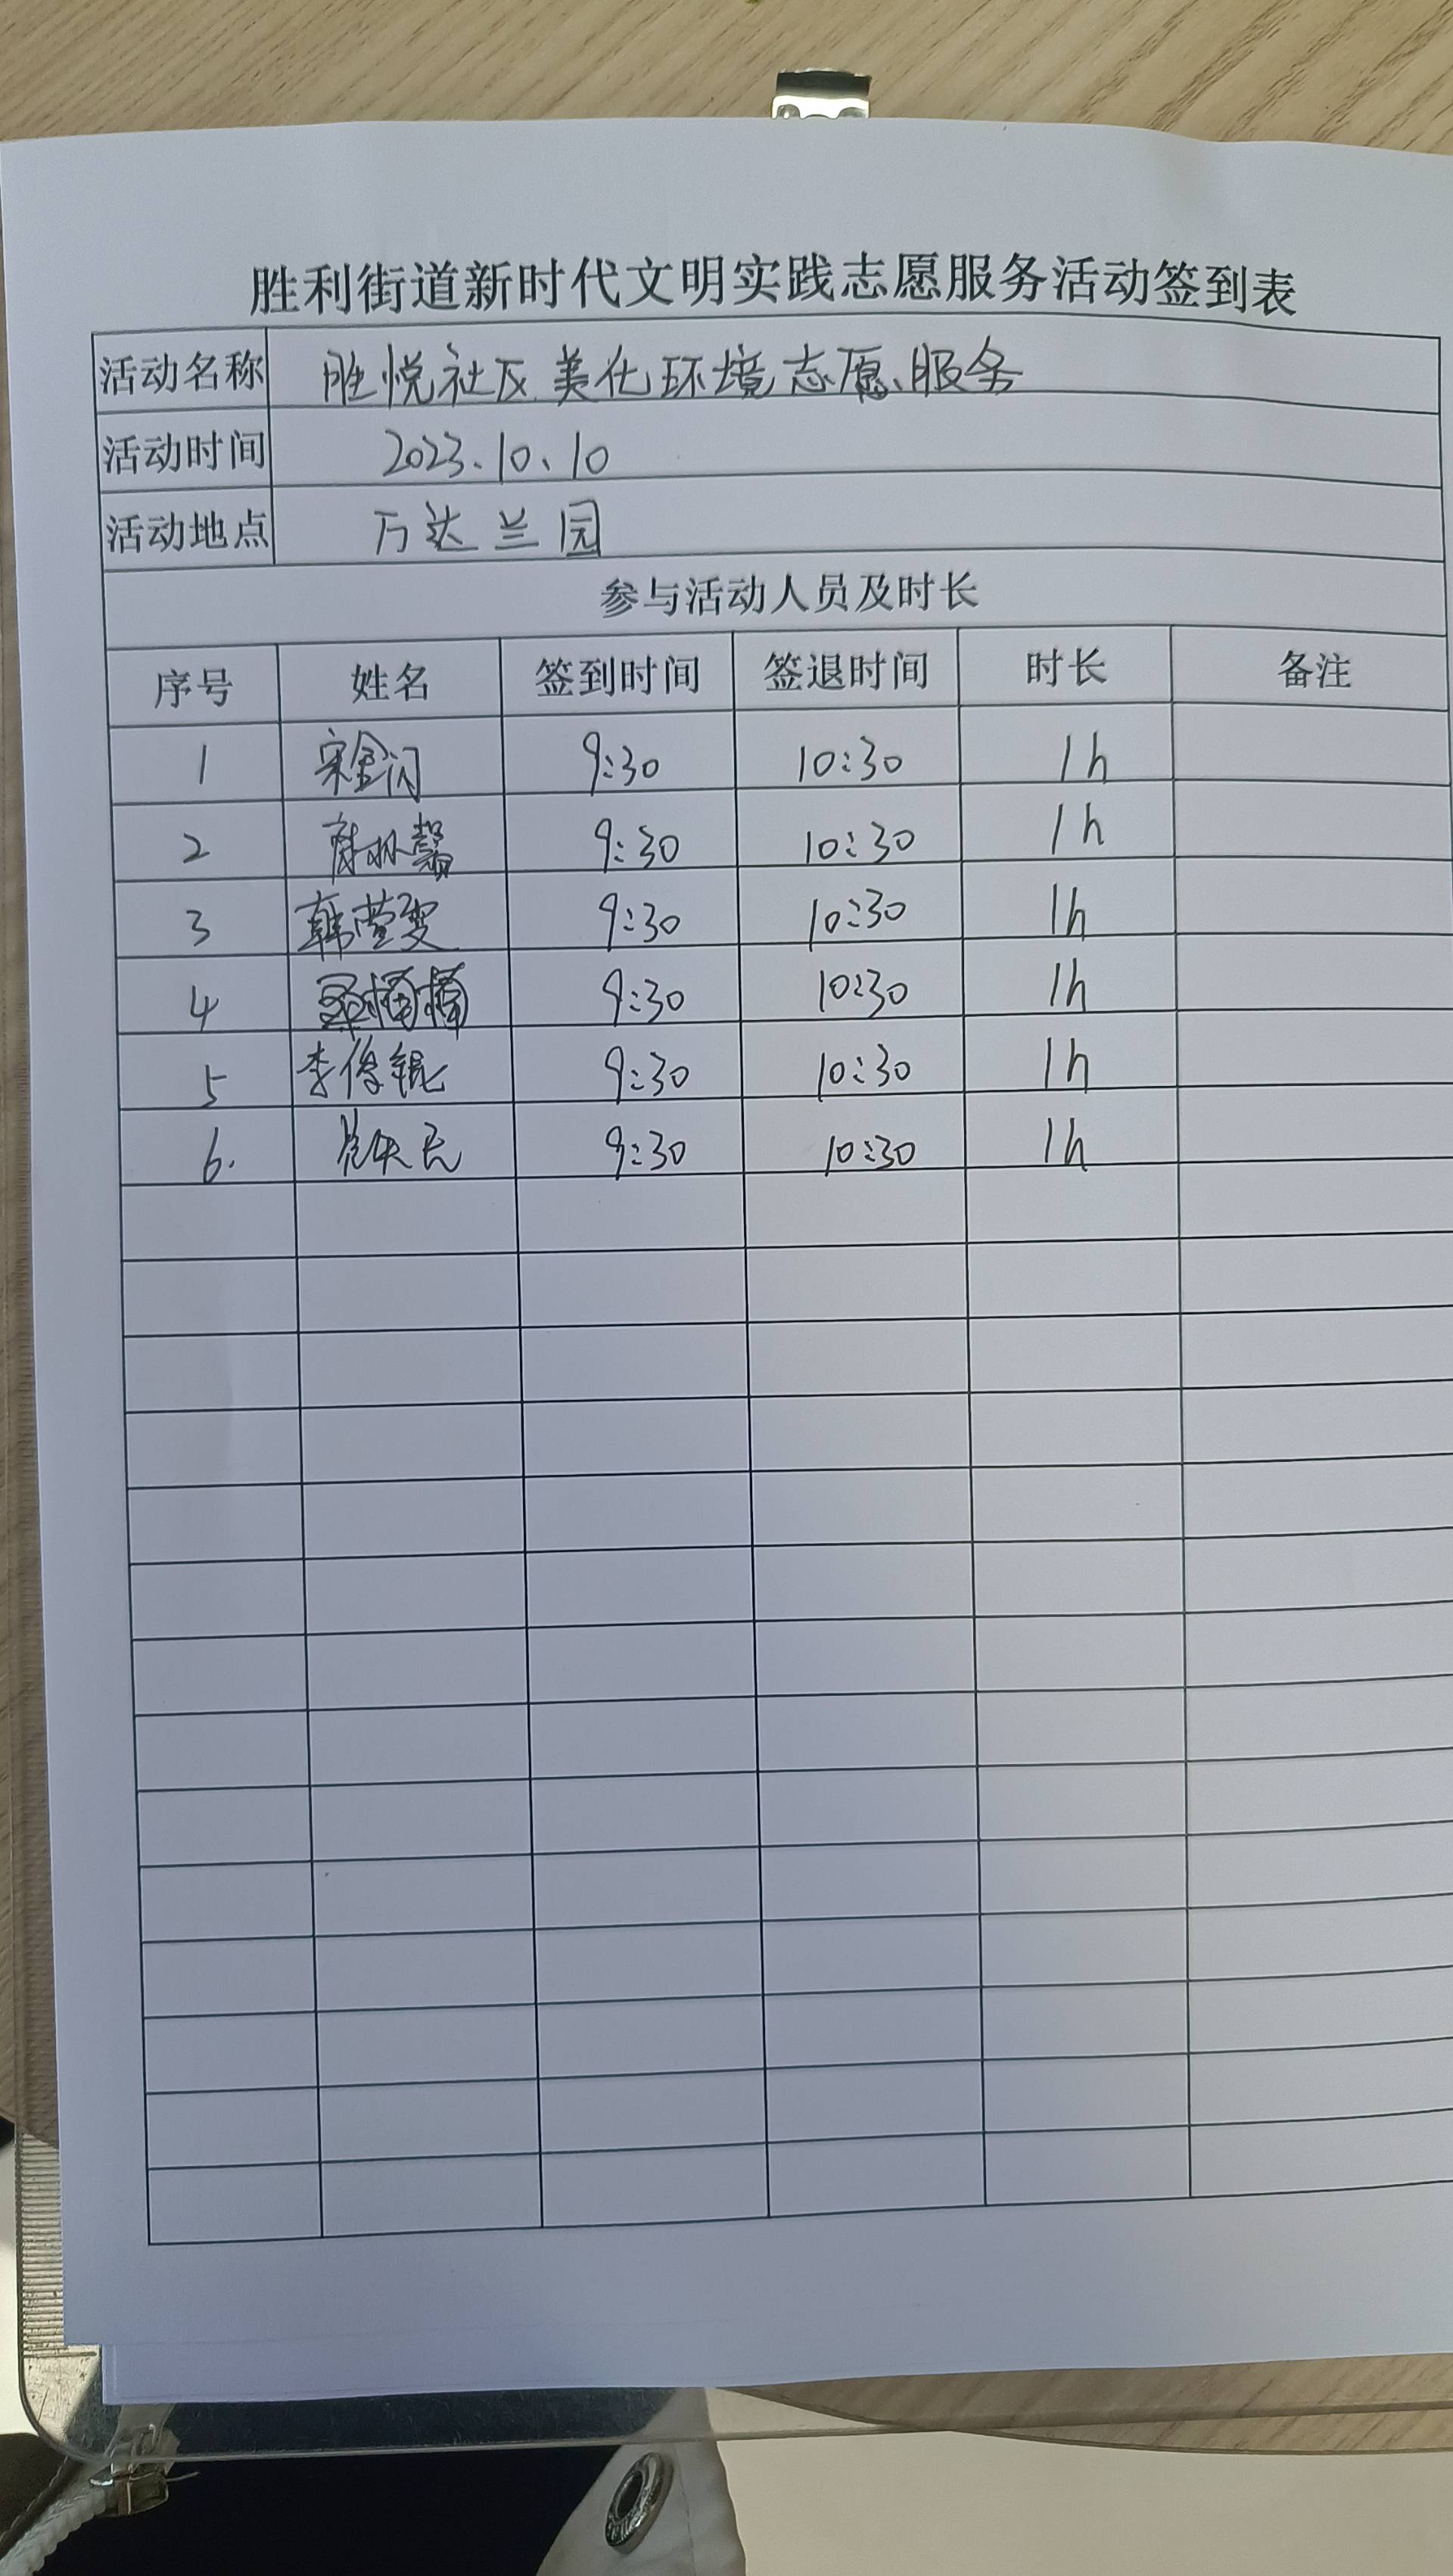 胜利街道新时代文明实践志愿服务活动签到表
活动名称 胜悦社区美化环境志愿服务
活动时间 2023.10.10
活动地点 万达兰园
参与活动人员及时长
序号 姓名 签到时间 签退时间 时长 备注
1 宋金闪 9:30 10:30 1h
2 9:30 10:30 1h
3 韩莹雯 9:30 10:30 1h
4 9:30 10:30 1h
5 李俊锟 9:30 10:30 1h
6. 9:30 10:30 1h